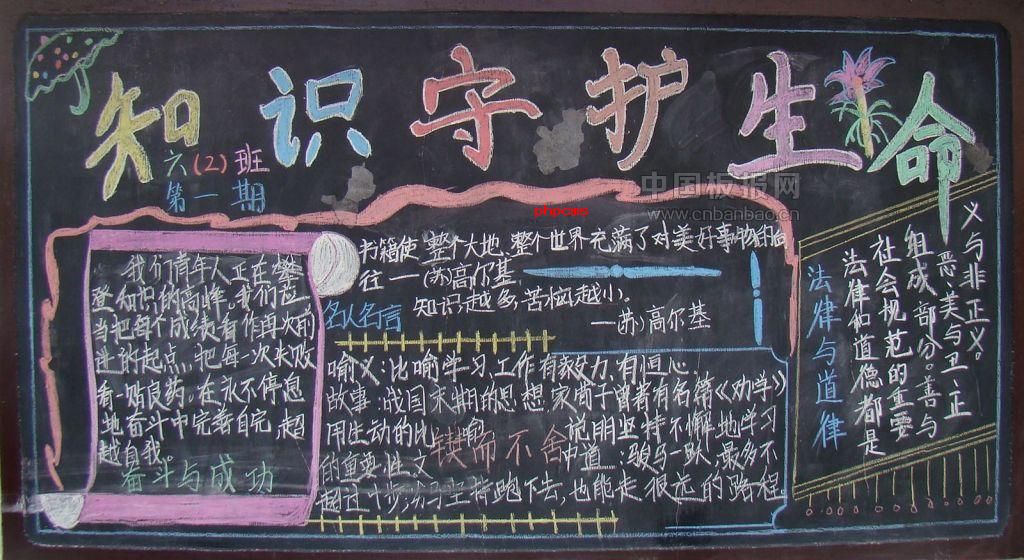 知识守护生命
六(2)班
第一期
中国板报网
www.cnbanbao.cn
phpcms
我们青年人正在攀
登知识的高峰。我们应
当把每个成绩看作再次前
进的起点,把每一次失败
看一贴良药。在永不停息
地奋斗中完善自完 超
越自我。
奋斗与成功
书籍使 整个大地,整个世界充满了对美好事物的
往——(苏)高尔基
知识越多,苦恼越小。
——(苏)高尔基
名人名言
喻义:比喻学习、工作有毅力,有恒心。
故事:战国末期的思想家荀子曾著有名篇《劝学》
用生动的比喻 说明坚持不懈地学习
的重要性 文 中道:骏马一跃,最多不
锲而不舍
超过十步;劣马坚持跑下去,也能走很远的路程
法律与道律
法律和道德都是
社会规范的重要
组成部分。善与
恶、美与丑、正
义与非正义。